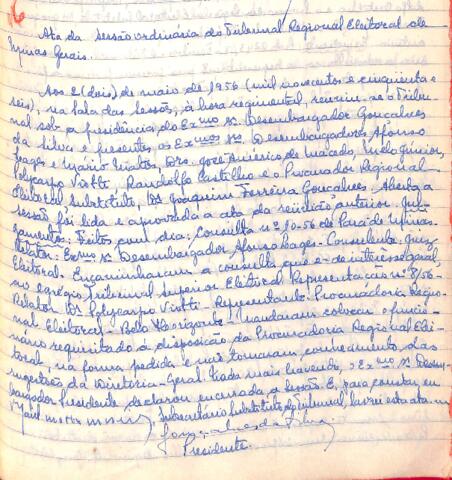 Ata da sessão ordinária do Tribunal Regional Eleitoral de
Minas Gerais.
Aos 2 (dois) de maio de 1956 (mil novecentos e cinquenta e
seis), na sala das sessões, à hora regimental, reuniu-se o Tribu-
nal sob a presidência do Exmo Sr. Desembargador Gonçalves
da Silva e presentes os Exmos Srs. Desembargadores Afonso
Lages e Mário Matos, Drs. José Américo de Macedo, Melo Júnior,
Policarpo Viotti, Randolfo Castilho e o Procurador Regional
Eleitoral Substituto, Dr. Joaquim Ferreira Gonçalves. Aberta a
sessão foi lida e aprovada a ata da reunião anterior. Jul-
gamentos: Feitos com dia: Consulta nº 10-56 de Pará de Minas.
Relator: Exmo Sr. Desembargador Afonso Lages - Consulente: Juiz
Eleitoral. Encaminharam a consulta que é de interêsse geral,
ao egrégio Tribunal Superior Eleitoral. Representação nº 8/56-
Relator Dr. Policarpo Viotti - Representante: Procuradoria Regio-
nal Eleitoral - Belo Horizonte - Mandaram colocar o funcio-
nário requisitado à disposição da Procuradoria Regional Elei-
toral, na forma pedida e não tomaram conhecimento das
sugestões da Diretoria-Geral. Nada mais havendo, o Exmo Sr. Desem-
bargador Presidente declarou encerrada a sessão. E, para constar, eu
Subsecretário Substituto do Tribunal, lavrei esta ata.
Gonçalves da Silva
Presidente.